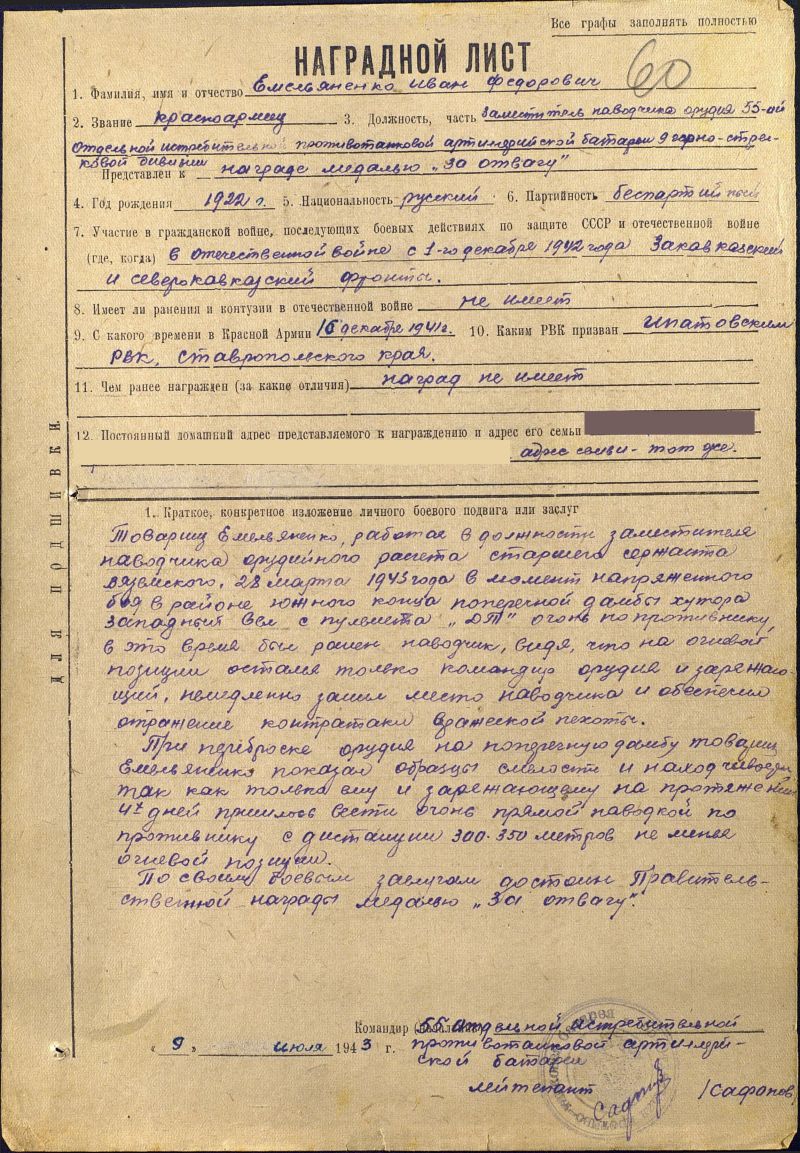 Все графы заполнять полностью
НАГРАДНОЙ ЛИСТ
60
1. Фамилия, имя и отчество Емельяненко Иван Федорович
2. Звание красноармеец 3. Должность, часть заместитель наводчика орудия 55-ой
отдельной истребительной противотанковой артиллерийской батареи 9 горно-стрел-
ковой дивизии
Представлен к награде медалью „За отвагу"
4. Год рождения 1922 г. 5. Национальность русский 6. Партийность беспартийный
7. Участие в гражданской войне, последующих боевых действиях по защите СССР и отечественной войне
(где, когда) в Отечественной войне с 1-го декабря 1942 года Закавказский
и северокавказский фронты.
8. Имеет ли ранения и контузии в отечественной войне не имеет
9. С какого времени в Красной Армии 16 декабря 1941 г. 10. Каким РВК призван Ипатовским
РВК, Ставропольского края.
11. Чем ранее награжден (за какие отличия) наград не имеет
12. Постоянный домашний адрес представляемого к награждению и адрес его семьи
адрес семьи - тот же.
ДЛЯ ПОДШИВКИ
1. Краткое, конкретное изложение личного боевого подвига или заслуг
Товарищ Емельяненко, работая в должности заместителя
наводчика орудийного расчета старшего сержанта
Вяземского, 28 марта 1943 года в момент напряженного
боя в районе южного конца поперечной дамбы хутора
Западный вел с пулемета „ДТ" огонь по противнику,
в это время был ранен наводчик, видя, что на огневой
позиции остался только командир орудия и заряжаю-
щий, немедленно занял место наводчика и обеспечил
отражение контратаки вражеской пехоты.
При переброске орудия на поперечную дамбу товарищ
Емельяненко показал образцы смелости и находчивости
так как только ему и заряжающему на протяжении
4х дней пришлось вести огонь прямой наводкой по
противнику с дистанции 300-350 метров не меняя
огневой позиции.
По своим боевым заслугам достоин Правитель-
ственной награды медалью „За отвагу".
Командир 55 отдельной истребительной
„ 9 " июля 1943 г. противотанковой артиллерий-
ской батареи
лейтенант /Сафонов/